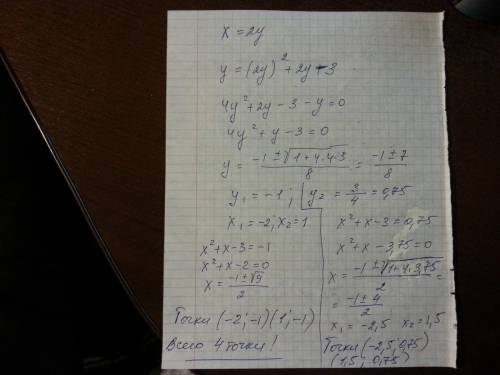 x = 2y
y = (2y)² + 2y - 3
4y² + 2y - 3 - y = 0
4y² + y - 3 = 0
y = (-1 ± √(1 + 4·4·3))/8 = (-1 ± 7)/8
y₁ = -1; y₂ = 3/4 = 0,75
x₁ = -2; x₂ = 1
x² + x - 3 = -1
x² + x - 2 = 0
x = (-1 ± √9)/2
Точки (-2; -1) (1; -1)
Всего 4 точки!
x² + x - 3 = 0,75
x² + x - 3,75 = 0
x = (-1 ± √(1 + 4·3,75))/2 =
= (-1 ± 4)/2
x₁ = -2,5 x₂ = 1,5
Точки (-2,5; 0,75)
(1,5; 0,75)